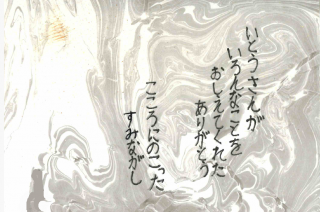 いとうさんが
いろんなことを
おしえてくれた
ありがとう
こころにのこった
すみながし